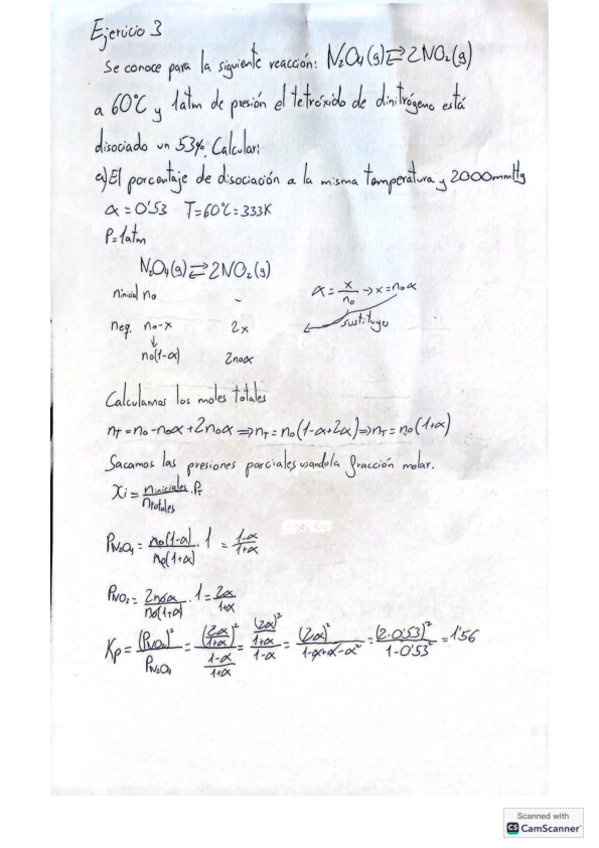 Ejercicio 3
Se conoce para la siguiente reacción: N₂O₄(g) ⇄ 2NO₂(g)
a 60ºC y 1atm de presión el tetróxido de dinitrógeno está
disociado un 53%. Calcular:
a) El porcentaje de disociación a la misma temperatura y 2000mmHg
α = 0'53 T = 60ºC = 333K
P = 1atm
N₂O₄(g) ⇄ 2NO₂(g)
ninicial n₀ - α = x/n₀ → x = n₀α
neq. n₀-x 2x sustituyo
↓
n₀(1-α) 2n₀α
Calculamos los moles totales
nT = n₀ - n₀α + 2n₀α ⇒ nT = n₀(1-α+2α) ⇒ nT = n₀(1+α)
Sacamos las presiones parciales usando la fracción molar.
Xi = niniciales/ntotales · PT
PN₂O₄ = n₀(1-α)/n₀(1+α) · 1 = 1-α/1+α
PNO₂ = 2n₀α/n₀(1+α) · 1 = 2α/1+α
Kp = (PNO₂)²/PN₂O₄ = (2α/1+α)²/(1-α/1+α) = ((2α)²/1+α)/(1-α) = (2α)²/1-α+α-α² = (2·0'53)²/1-0'53² = 1'56
Scanned with
CS CamScanner